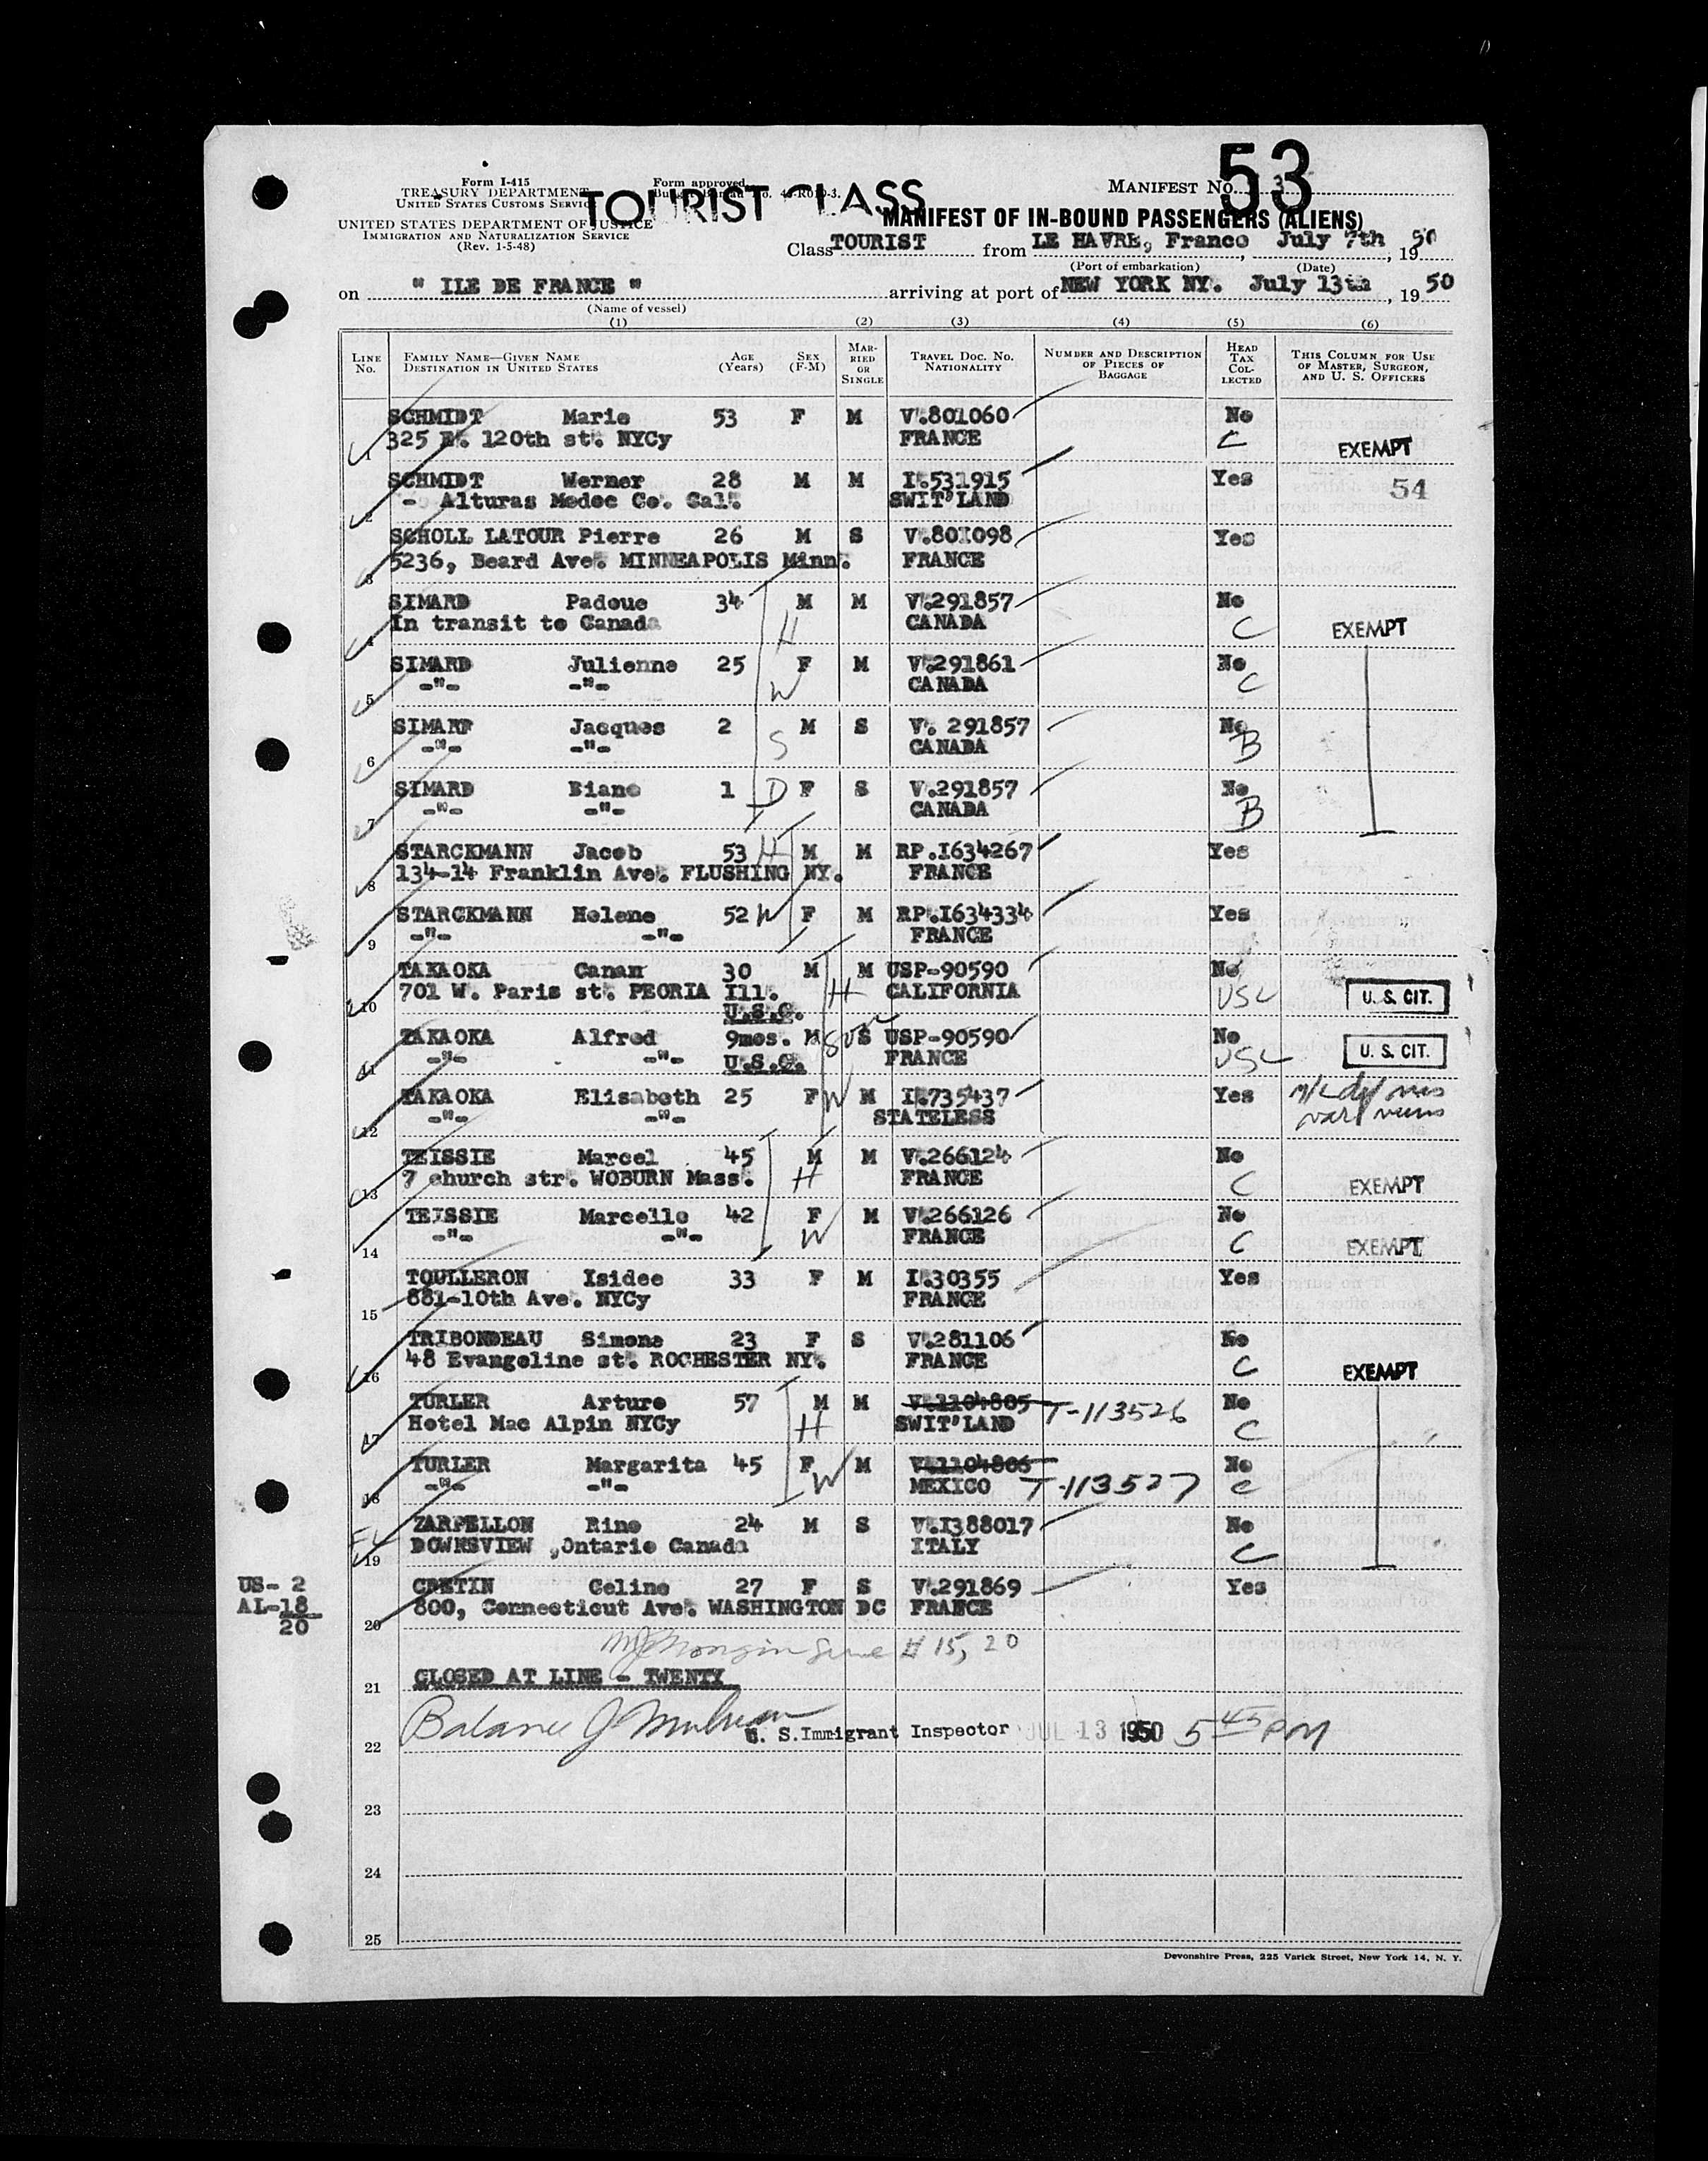 53
Form I-415
TREASURY DEPARTMENT
UNITED STATES CUSTOMS SERVICE
UNITED STATES DEPARTMENT OF JUSTICE
IMMIGRATION AND NATURALIZATION SERVICE
(Rev. 1-5-48)
Form approved
TOURIST CLASS
MANIFEST No. 3
MANIFEST OF IN-BOUND PASSENGERS (ALIENS)
Class TOURIST from LE HAVRE, France, July 7th, 1950
(Port of embarkation) (Date)
on " ILE DE FRANCE " arriving at port of NEW YORK NY. July 13th, 1950
(Name of vessel)
(1) (2) (3) (4) (5) (6)
LINE No. FAMILY NAME—GIVEN NAME DESTINATION IN UNITED STATES AGE (Years) SEX (F-M) MARRIED OR SINGLE TRAVEL DOC. No. NATIONALITY NUMBER AND DESCRIPTION OF PIECES OF BAGGAGE HEAD TAX COLLECTED THIS COLUMN FOR USE OF MASTER, SURGEON, AND U. S. OFFICERS
SCHMIDT Marie 53 F M V.801060 No
1 325 E. 120th st. NYCy FRANCE C EXEMPT
SCHMIDT Werner 28 M M I.531915 Yes
2 - Alturas Modoc Co. Cal. SWIT'LAND 54
SCHOLL LATOUR Pierre 26 M S V.801098 Yes
3 5236, Beard Ave. MINNEAPOLIS Minn. FRANCE
SIMARD Padoue 34 M M V.291857 No
4 In transit to Canada H CANADA C EXEMPT
SIMARD Julienne 25 F M V.291861 No
5 -"- -"- W CANADA C
SIMARD Jacques 2 M S V. 291857 No
6 -"- -"- S CANADA B
SIMARD Diane 1 D F S V.291857 No
7 -"- -"- CANADA B
STARCKMANN Jacob 53 H M M RP.I634267 Yes
8 134-14 Franklin Ave. FLUSHING NY. FRANCE
STARCKMANN Helene 52 W F M RP.I634334 Yes
9 -"- -"- FRANCE
TAKAOKA Canan 30 M M USP-90590 No
10 701 W. Paris st. PEORIA Ill. H CALIFORNIA USC U. S. CIT.
U.S.C.
TAKAOKA Alfred 9mos. M Son S USP-90590 No
11 -"- -"- U.S.C. FRANCE USC U. S. CIT.
TAKAOKA Elisabeth 25 F W M I.735437 Yes
12 -"- -"- STATELESS
TEISSIE Marcel 45 M M V.266124 No
13 7 church str. WOBURN Mass. H FRANCE C EXEMPT
TEISSIE Marcelle 42 F M V.266126 No
14 -"- -"- W FRANCE C EXEMPT
TOULLERON Isidee 33 F M I.30355 Yes
15 881-10th Ave. NYCy FRANCE
TRIBONDEAU Simone 23 F S V.281106 No
16 48 Evangeline st. ROCHESTER NY. FRANCE C EXEMPT
TURLER Arturo 57 M M V.1104805 T-113526 No
17 Hotel Mac Alpin NYCy H SWIT'LAND C
TURLER Margarita 45 F W M V.1104806 No
18 -"- -"- MEXICO T-113527 C
ZARPELLON Rino 24 M S V.I388017 No
19 DOWNSVIEW ,Ontario Canada ITALY C
CRETIN Celine 27 F S V.291869 Yes
20 800, Connecticut Ave. WASHINGTON DC FRANCE
US- 2
AL-18
20
# 15, 20
21 CLOSED AT LINE - TWENTY
22 U. S. Immigrant Inspector JUL 13 1950 5 45 PM
23
24
25
Devonshire Press, 225 Varick Street, New York 14, N. Y.